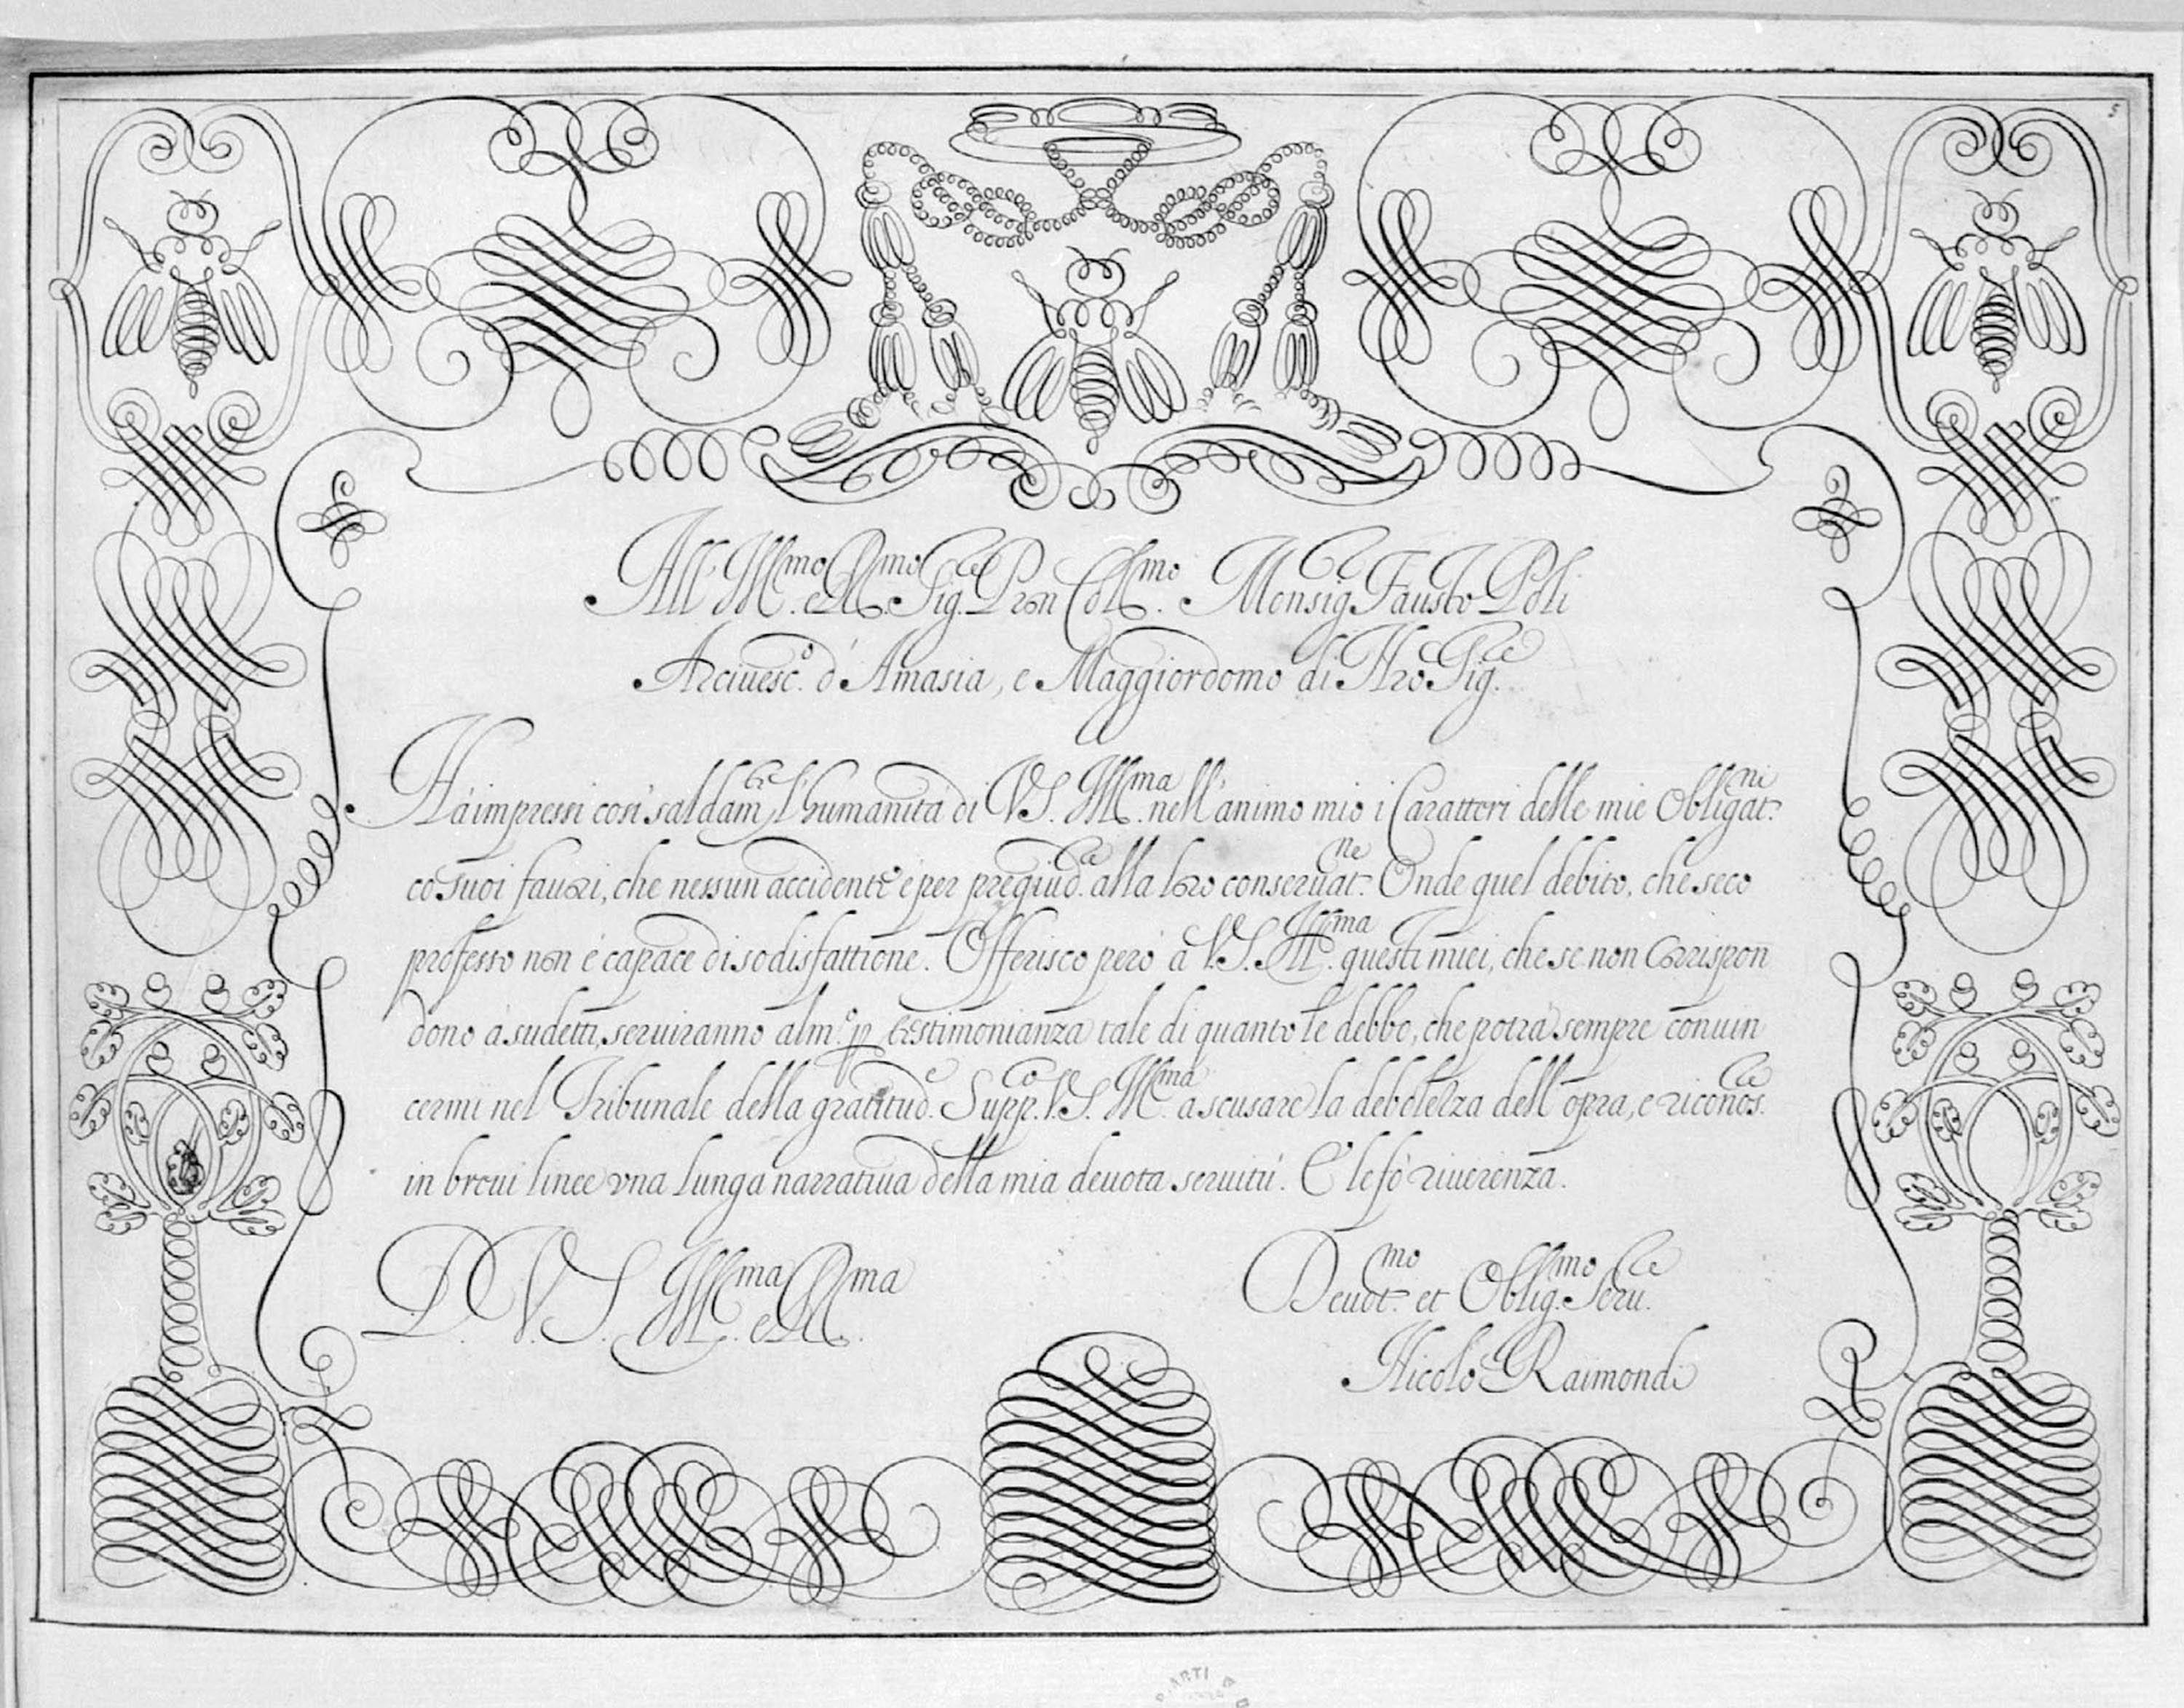 5
All' Ill.mo e R.mo Sig.re Pron Coll.mo Monsig.re Fausto Poli
Arciuesc.o d'Amasia, e Maggiordomo di Nro Sig.re
Hà impressi così saldam.te l'humanità di V.S. Ill.ma nell'animo mio i Caratteri delle mie Obligat.ni
co suoi fauori, che nessun accidente è per pregiud.ce alla loro conseruat.ne Onde quel debito, che seco
professo non è capace di sodisfattione. Offerisco però à V.S. Ill.ma questi miei, che se non corrispon
dono à sudetti, seruiranno alm.o p testimonianza tale di quanto le debbo, che potrà sempre conuin
cermi nel Tribunale della gratitud.e Supp.co V.S. Ill.ma a scusare la debolezza dell'opra, e riconos.re
in breui linee vna lunga narratiua della mia deuota seruitù. E le fò riuerenza.
D. V. S. Ill.ma e R.ma
Deuot.mo et Oblig.mo Seru.re
Nicolò Raimondi
ARTI